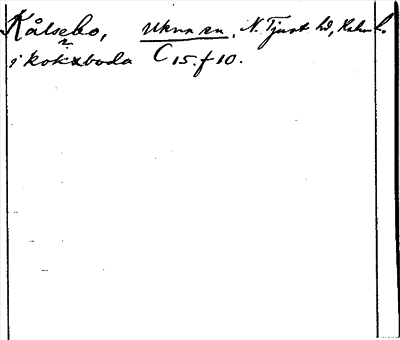 Kålsebo, Ukna sn, N. Tjust hd, Kalm. l.
i kokxboda C 15. f 10.